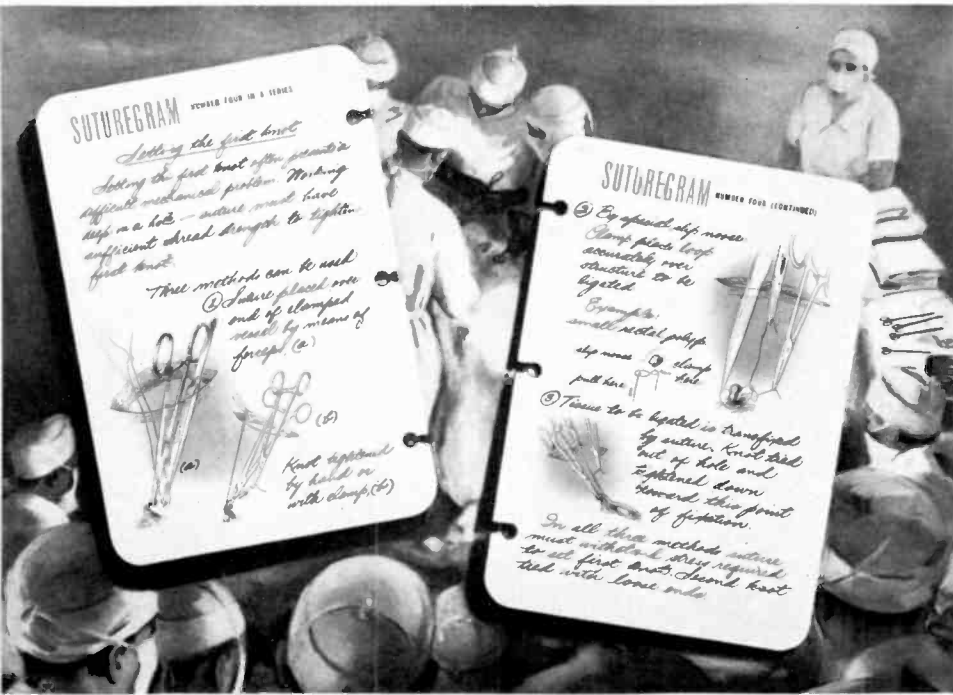 SUTUREGRAM NUMBER FOUR IN A SERIES
Setting the first knot
Setting the first knot often presents a
difficult mechanical problem. Working
deep in a hole — suture must have
sufficient thread strength to tighten
first knot.
Three methods can be used
① Suture placed over
end of clamped
vessel by means of
forceps. (a)
(a)
(b)
Knot tightened
by hand or
with clamp. (b)
SUTUREGRAM NUMBER FOUR (CONTINUED)
② By special slip noose
Clamp places loop
accurately over
structure to be
ligated
Example:
small rectal polyps
slip noose
clamp
here
pull here
③ Tissue to be ligated is transfixed
by suture. Knot tied
out of hole and
tightened down
toward this point
of fixation.
In all three methods suture
must withstand stress required
to set first knot. Second knot
tied with loose ends.